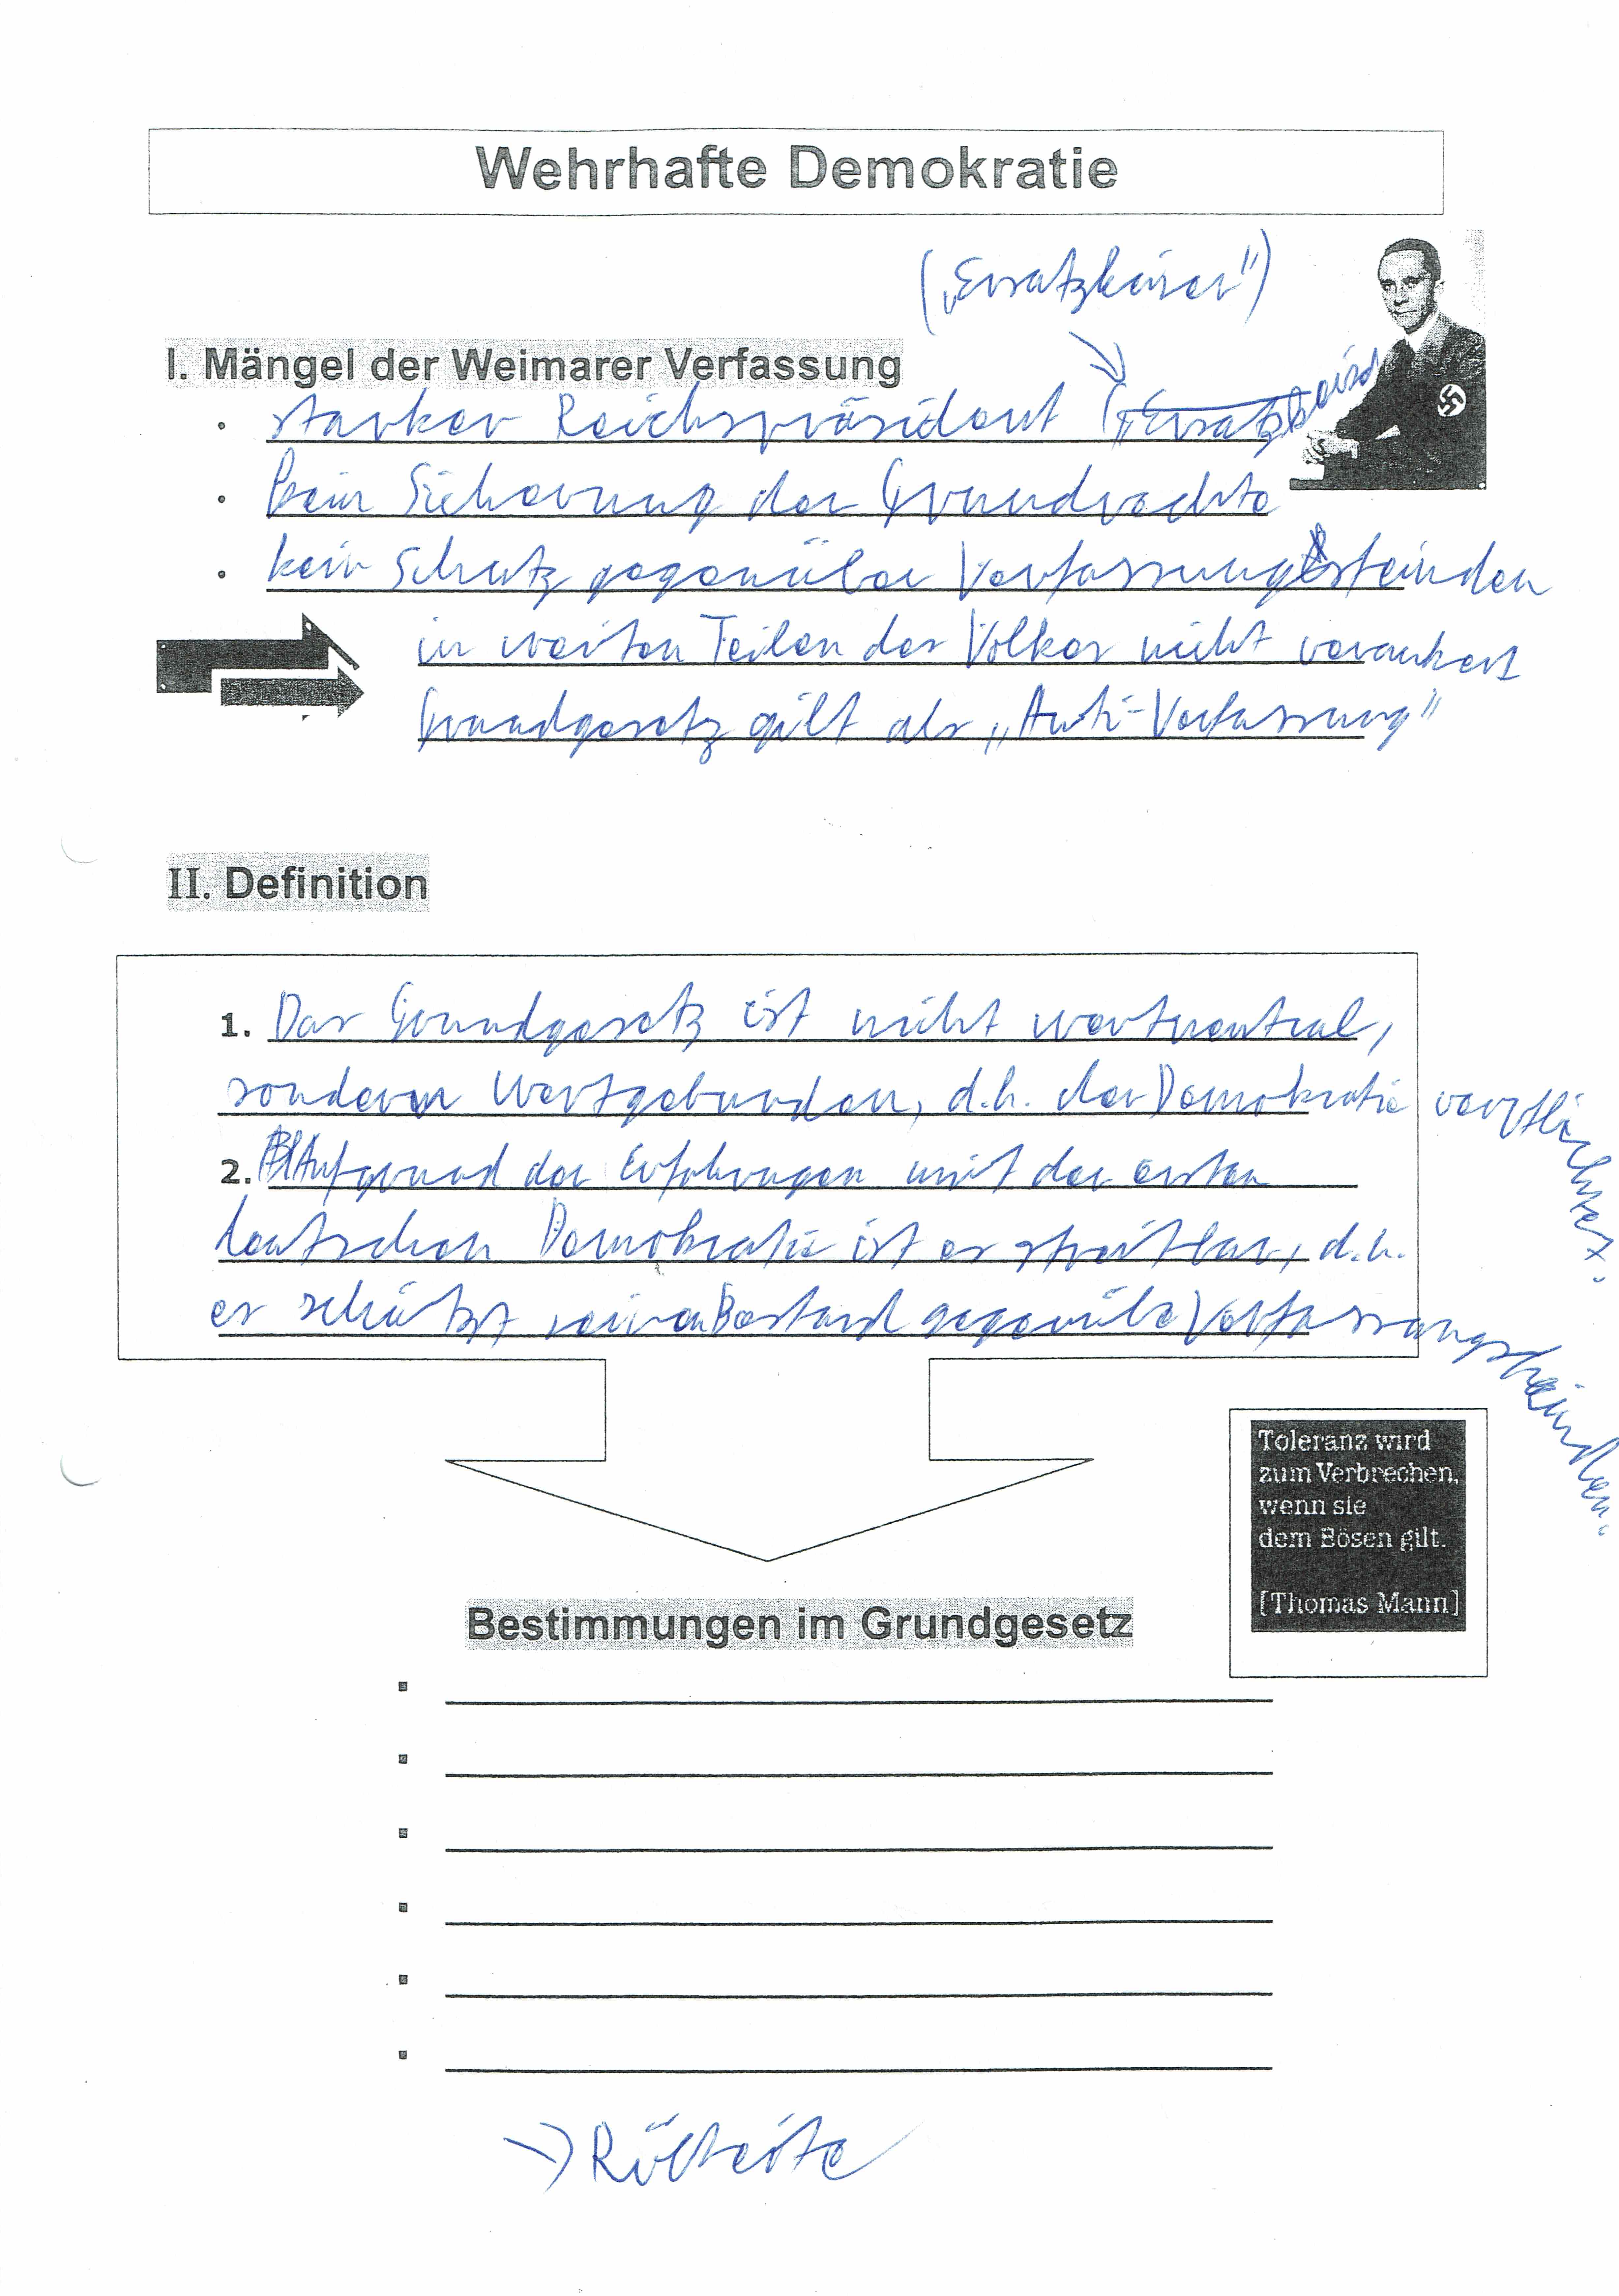 Wehrhafte Demokratie
(„Ersatzkaiser")
I. Mängel der Weimarer Verfassung
• starker Reichspräsident („Ersatzkais
• kein Sicherung der Grundrechte
• kein Schutz gegenüber Verfassungsfeinden
in weiten Teilen des Volkes nicht verankert
Grundgesetz gilt als „Anti-Verfassung"
II. Definition
1. Das Grundgesetz ist nicht wertneutral,
sondern wertgebunden, d.h. der Demokratie verpflichtet.
2. Aufgrund der Erfahrungen mit der ersten
deutschen Demokratie ist es streitbar, d.h.
es schützt seinen Bestand gegenübe Verfassungsfeinden.
Toleranz wird
zum Verbrechen,
wenn sie
dem Bösen gilt.
[Thomas Mann]
Bestimmungen im Grundgesetz
→